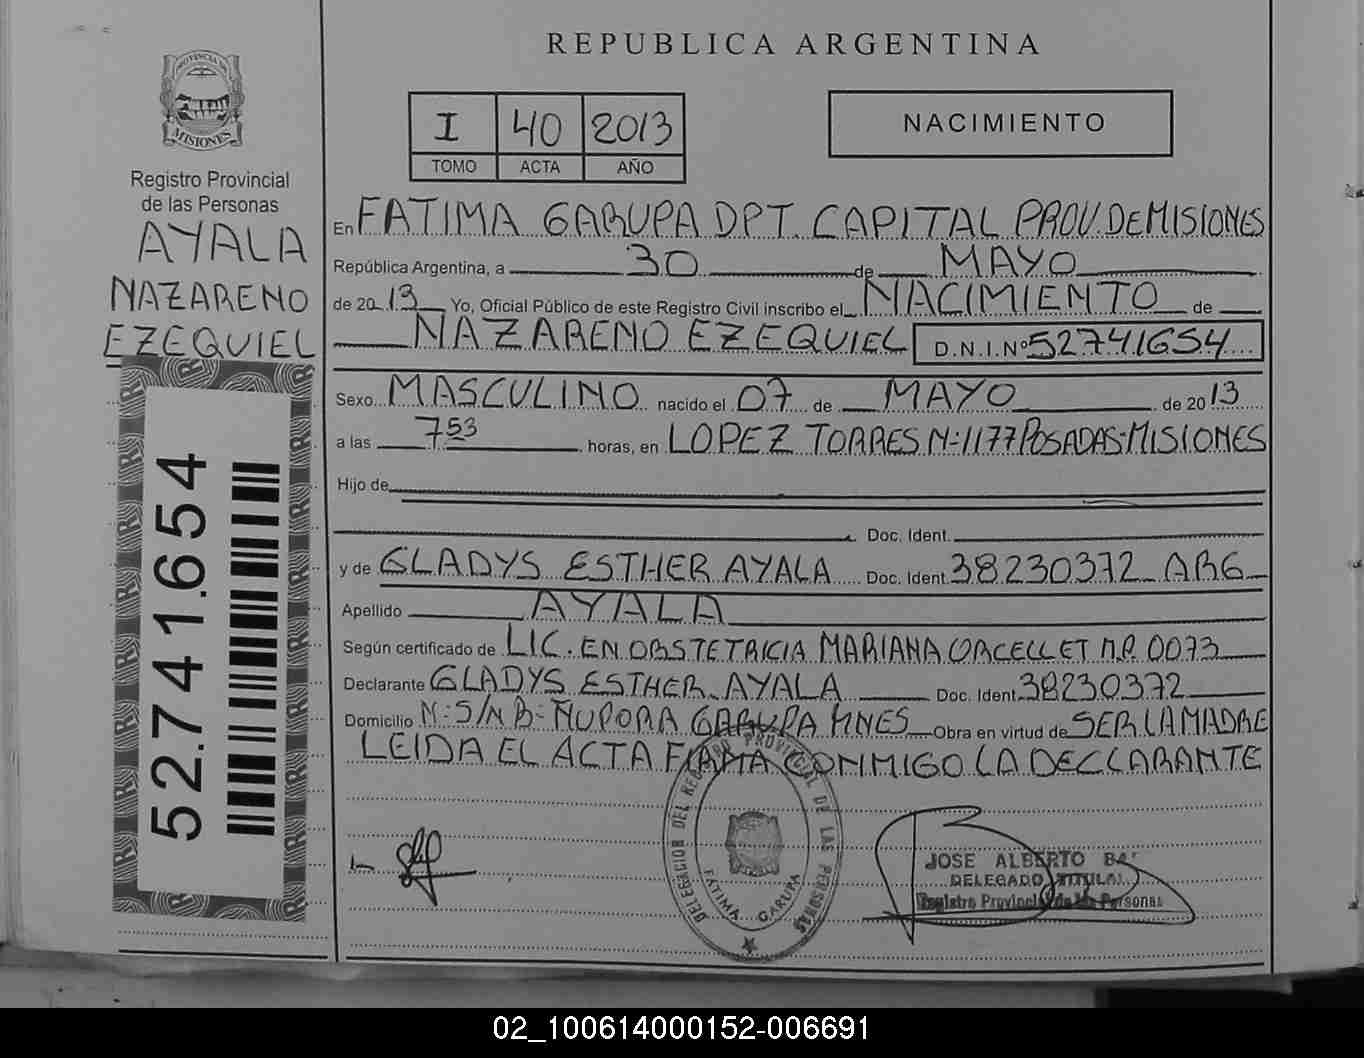 REPUBLICA ARGENTINA
PROVINCIA DE
MISIONES
Registro Provincial
de las Personas
AYALA
NAZARENO
EZEQUIEL
52.741.654
I 40 2013
TOMO ACTA AÑO
NACIMIENTO
En FATIMA GARUPA DPT. CAPITAL PROV. DE MISIONES
República Argentina, a 30 de MAYO
de 2013 Yo, Oficial Público de este Registro Civil inscribo el NACIMIENTO de
NAZARENO EZEQUIEL D.N.I.Nº 52741654
Sexo MASCULINO nacido el 07 de MAYO de 2013
a las 7 53 horas, en LOPEZ TORRES N=1177 POSADAS-MISIONES
Hijo de
Doc. Ident.
y de GLADYS ESTHER AYALA Doc. Ident. 38230372 ARG
Apellido AYALA
Según certificado de LIC. EN OBSTETRICIA MARIANA CORCELLET M.P. 0073
Declarante GLADYS ESTHER AYALA Doc. Ident. 38230372
Domicilio N=S/N B=ÑUPORA GARUPA MNES Obra en virtud de SER LA MADRE
LEIDA EL ACTA FIRMA CONMIGO LA DECLARANTE
DELEGACION DEL REGISTRO PROVINCIAL DE LAS PERSONAS
FÁTIMA GARUPA
JOSE ALBERTO
DELEGADO TITULAR
Registro Provincial de las Personas
02_100614000152-006691